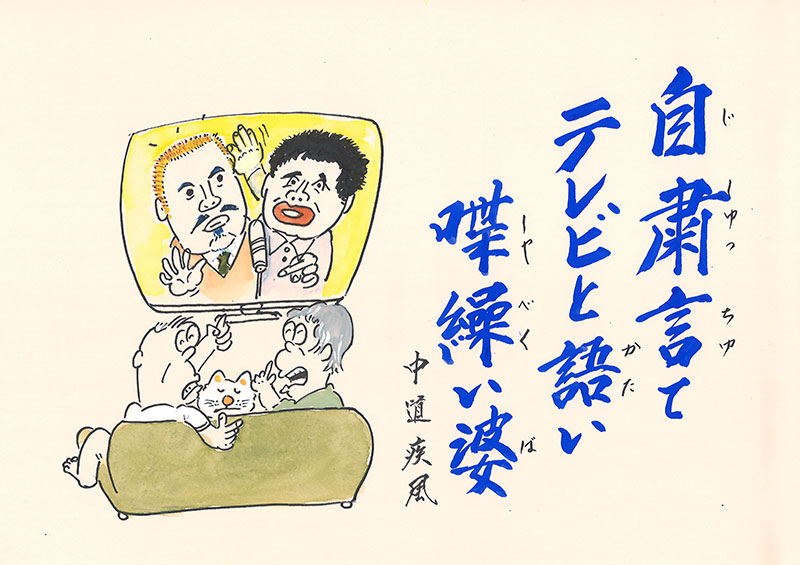 自粛言て
じしゅっちゆ
テレビと語い
かた
喋繰い婆
しやべくば
中道疾風